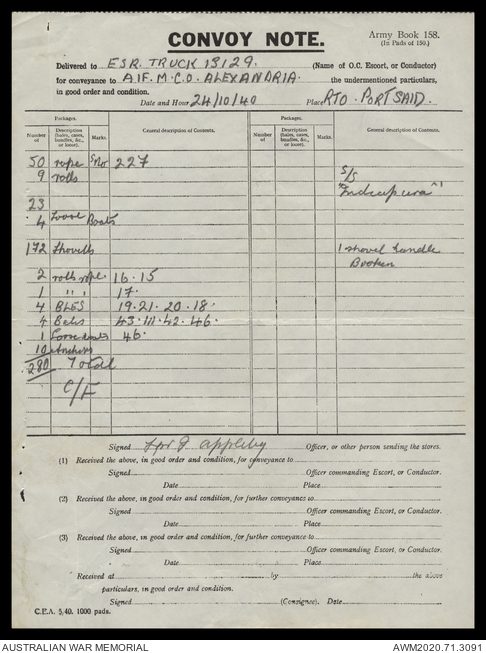 CONVOY NOTE.
Army Book 158.
(In Pads of 150.)
Delivered to E.S.R. TRUCK 13129. (Name of O.C. Escort, or Conductor)
for conveyance to A.I.F. M.C.O. ALEXANDRIA. the undermentioned particulars,
in good order and condition.
Date and Hour 24/10/40 Place RTO. PORT SAID.
Packages. General description of Contents. Packages. General description of Contents.
Number of Description (bales, cases, bundles, &c., or loose). Marks. Number of Description (bales, cases, bundles, &c., or loose). Marks.
50 rope S No 227
9 rolls S/S
"Indrapura"
23
4 Loose Boats
172 Shovells 1 shovel handle
Broken
2 rolls rope. 16. 15
1 " " 17.
4 BLES 19. 21. 20. 18.
4 Bales 43. 111. 42. 46.
1 46.
10 Anchors
280 Total
C/F
Signed J Appleby Officer, or other person sending the stores.
(1) Received the above, in good order and condition, for conveyance to
Signed Officer commanding Escort, or Conductor.
Date Place
(2) Received the above, in good order and condition, for further conveyance to
Signed Officer commanding Escort, or Conductor.
Date Place
(3) Received the above, in good order and condition, for further conveyance to
Signed Officer commanding Escort, or Conductor.
Date Place
Received at by the above
particulars, in good order and condition.
Signed (Consignee). Date
C.P.A. 5/40. 1000 pads.
AUSTRALIAN WAR MEMORIAL AWM2020.71.3091